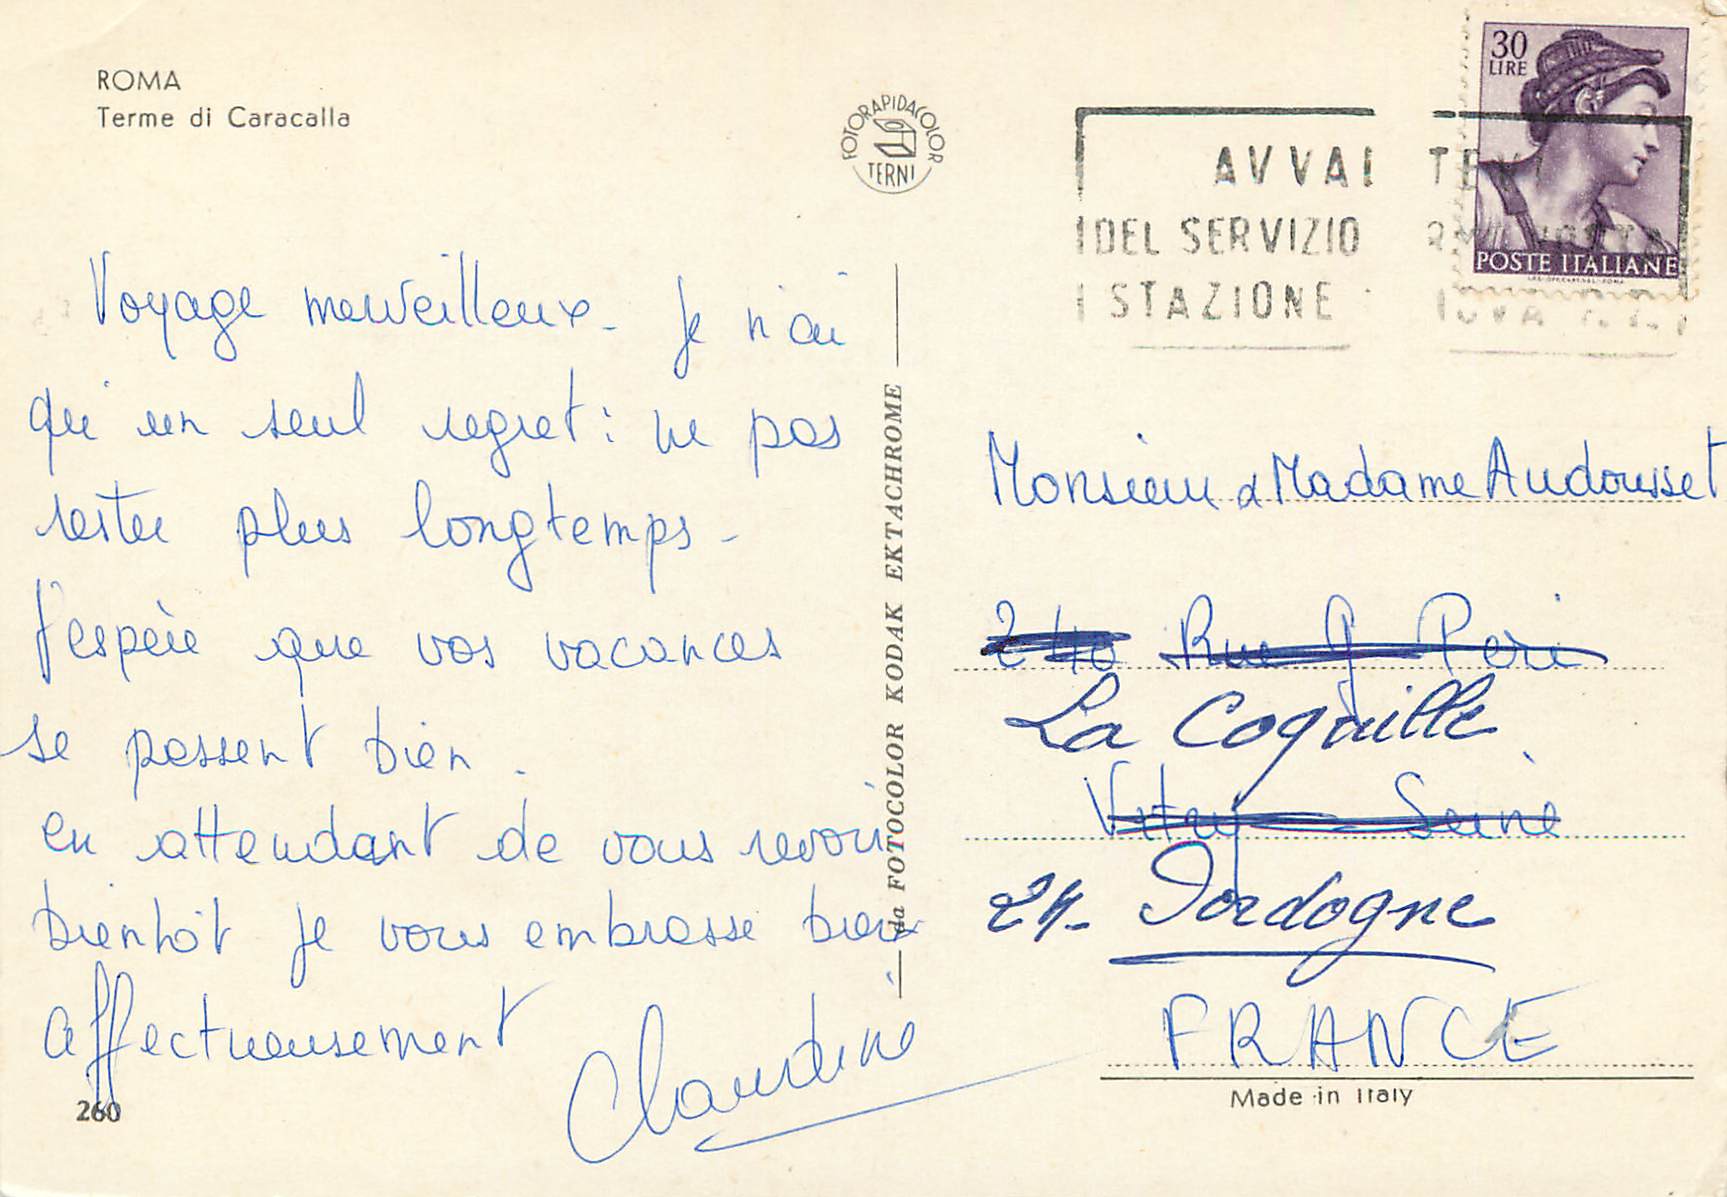 ROMA
Terme di Caracalla
FOTORAPIDACOLOR
TERNI
30
LIRE
POSTE ITALIANE
DEL SERVIZIO
STAZIONE
Voyage merveilleux - Je n'ai
qu'un seul regret : ne pas
rester plus longtemps -
J'espère que vos vacances
se passent bien .
en attendant de vous revoir
bientôt je vous embrasse bien
affectueusement
Claudine
260
da FOTOCOLOR KODAK EKTACHROME
Monsieur & Madame Audousset
240 Rue G Peri
La Coquille
Vitry Seine
24- Dordogne
FRANCE
Made in Italy